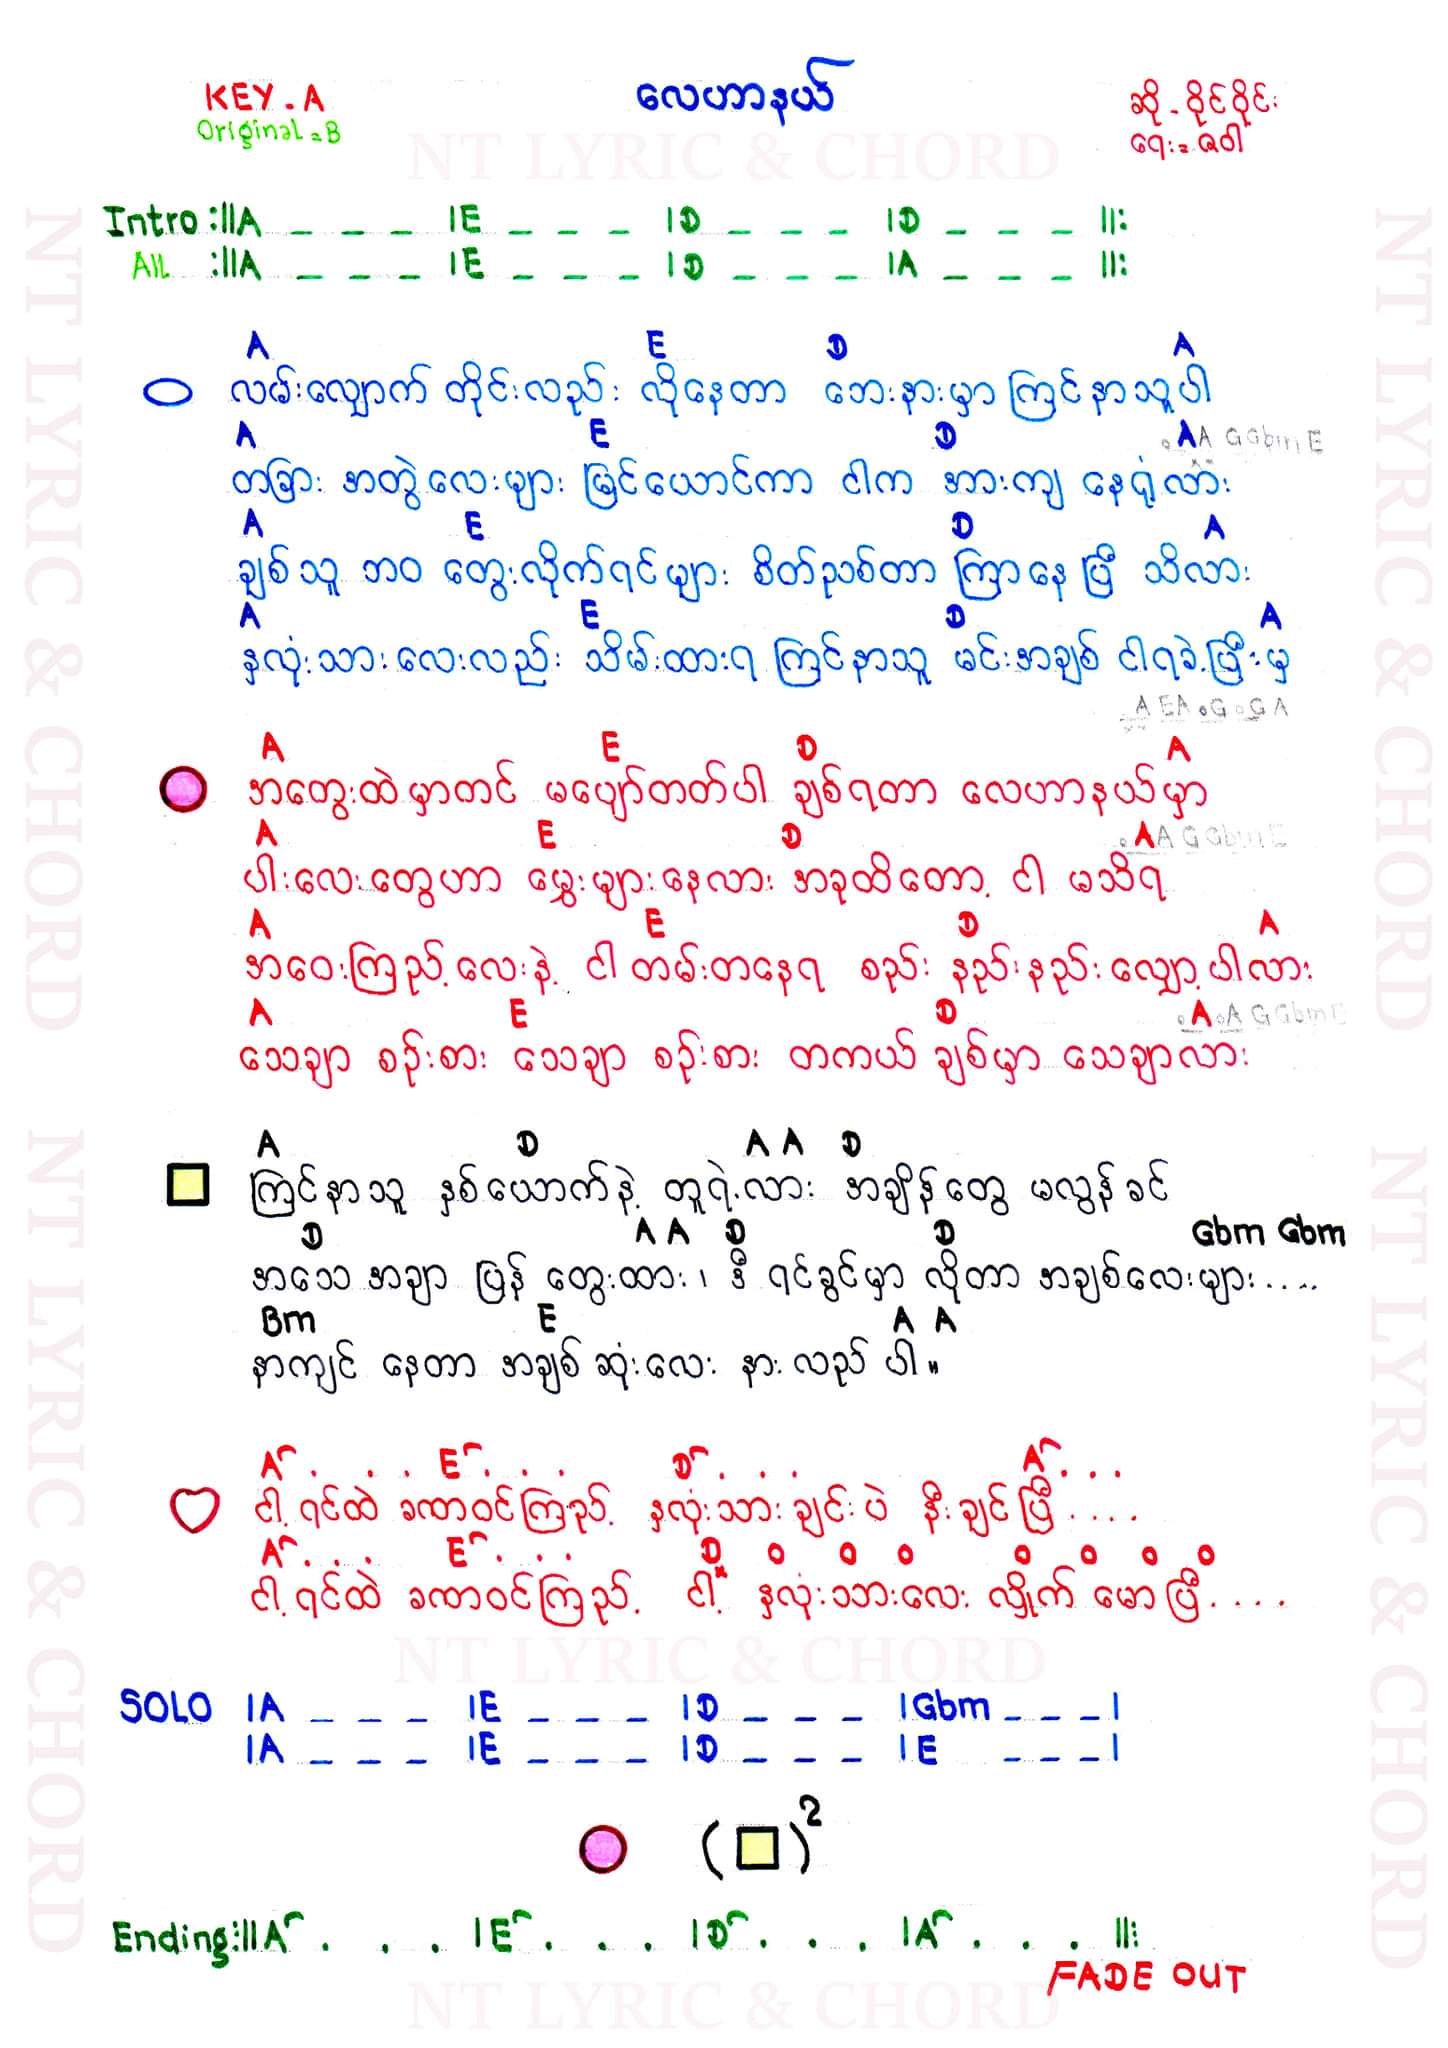 KEY.A လေဟာနယ် ဆို - ဝိုင်ဝိုင်း
Original = B ရေး = ဇဝါ
NT LYRIC & CHORD
Intro :||A _ _ _ |E _ _ _ |D _ _ _ |D _ _ _ ||:
All :||A _ _ _ |E _ _ _ |D _ _ _ |A _ _ _ ||:
A E D A
လမ်းလျှောက် တိုင်းလည်း လိုနေတာ ဘေးနားမှာ ကြင်နာသူပါ
A E D A A G Gbm E
တခြား အတွဲလေးများ မြင်ယောင်ကာ ငါက အားကျ နေရုံလား
A E D A
ချစ်သူ ဘဝ တွေးလိုက်ရင်များ စိတ်ညစ်တာ ကြာနေပြီ သိလား
A E D A
နှလုံးသားလေးလည်း သိမ်းထားရ ကြင်နာသူ မင်းအချစ် ငါရခဲ့ပြီးမှ
A EA G G A
A E D A
အတွေးထဲမှာတင် မပျော်တတ်ပါ ချစ်ရတာ လေဟာနယ်မှာ
A E D A A G Gbm E
ပါးလေးတွေဟာ မွှေးများနေလား အခုထိတော့ ငါ မသိရ
A E D A
အဝေးကြည့်လေးနဲ့ ငါတမ်းတနေရ စည်း နည်းနည်းလျှော့ပါလား
A E D A A G Gbm E
သေချာ စဉ်းစား သေချာ စဉ်းစား တကယ် ချစ်မှာ သေချာလား
A D A A D
ကြင်နာသူ နှစ်ယောက်နဲ့ တူရဲ့လား အချိန်တွေ မလွန်ခင်
D A A D D Gbm Gbm
အသေအချာ ပြန် တွေးထား၊ ဒီ ရင်ခွင်မှာ လိုတာ အချစ်လေးများ....
Bm E A A
နာကျင် နေတာ အချစ်ဆုံးလေး နားလည် ပါ။
A . . . E . . . D . . . A . . .
ငါ့ရင်ထဲ ခဏဝင်ကြည့် နှလုံးသားချင်းပဲ နီးချင်ပြီ....
A . . . E . . . D o o o o o o o
ငါ့ရင်ထဲ ခဏဝင်ကြည့် ငါ့ နှလုံးသားလေး လှိုက် မောပြီ....
NT LYRIC & CHORD
SOLO |A _ _ _ |E _ _ _ |D _ _ _ |Gbm _ _ _|
|A _ _ _ |E _ _ _ |D _ _ _ |E _ _ _|
( )2
Ending:||A . . . |E . . . |D . . . |A . . . ||:
FADE OUT
NT LYRIC & CHORD
NT LYRIC & CHORD
NT LYRIC & CHORD
NT LYRIC & CHORD
NT LYRIC & CHORD